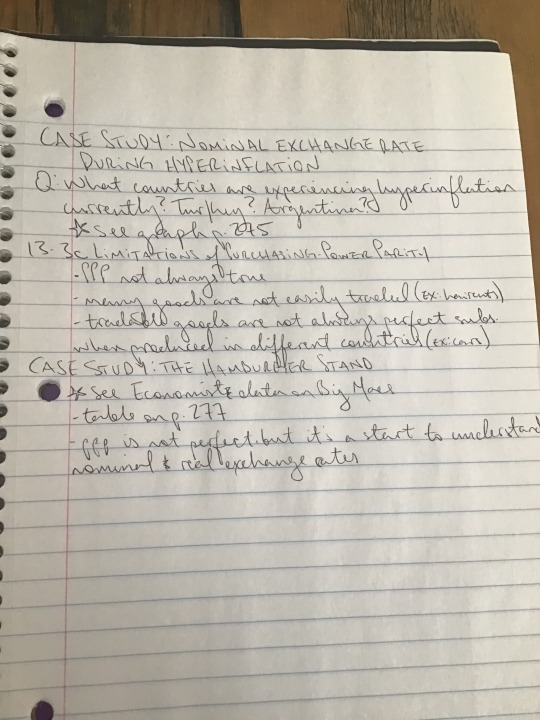 CASE STUDY: NOMINAL EXCHANGE RATE
DURING HYPERINFLATION
Q: What countries are experiencing hyperinflation
currently? Turkey? Argentina?
* See graph p. 275
13-3c LIMITATIONS of PURCHASING-POWER PARITY
- PPP not always true
- many goods are not easily traded (ex: haircuts)
- tradable goods are not always perfect subs.
when produced in different countries (ex: cars)
CASE STUDY: THE HAMBURGER STAND
* See Economist's data on Big Macs
- table on p. 277
- PPP is not perfect but it's a start to understand
nominal & real exchange rates